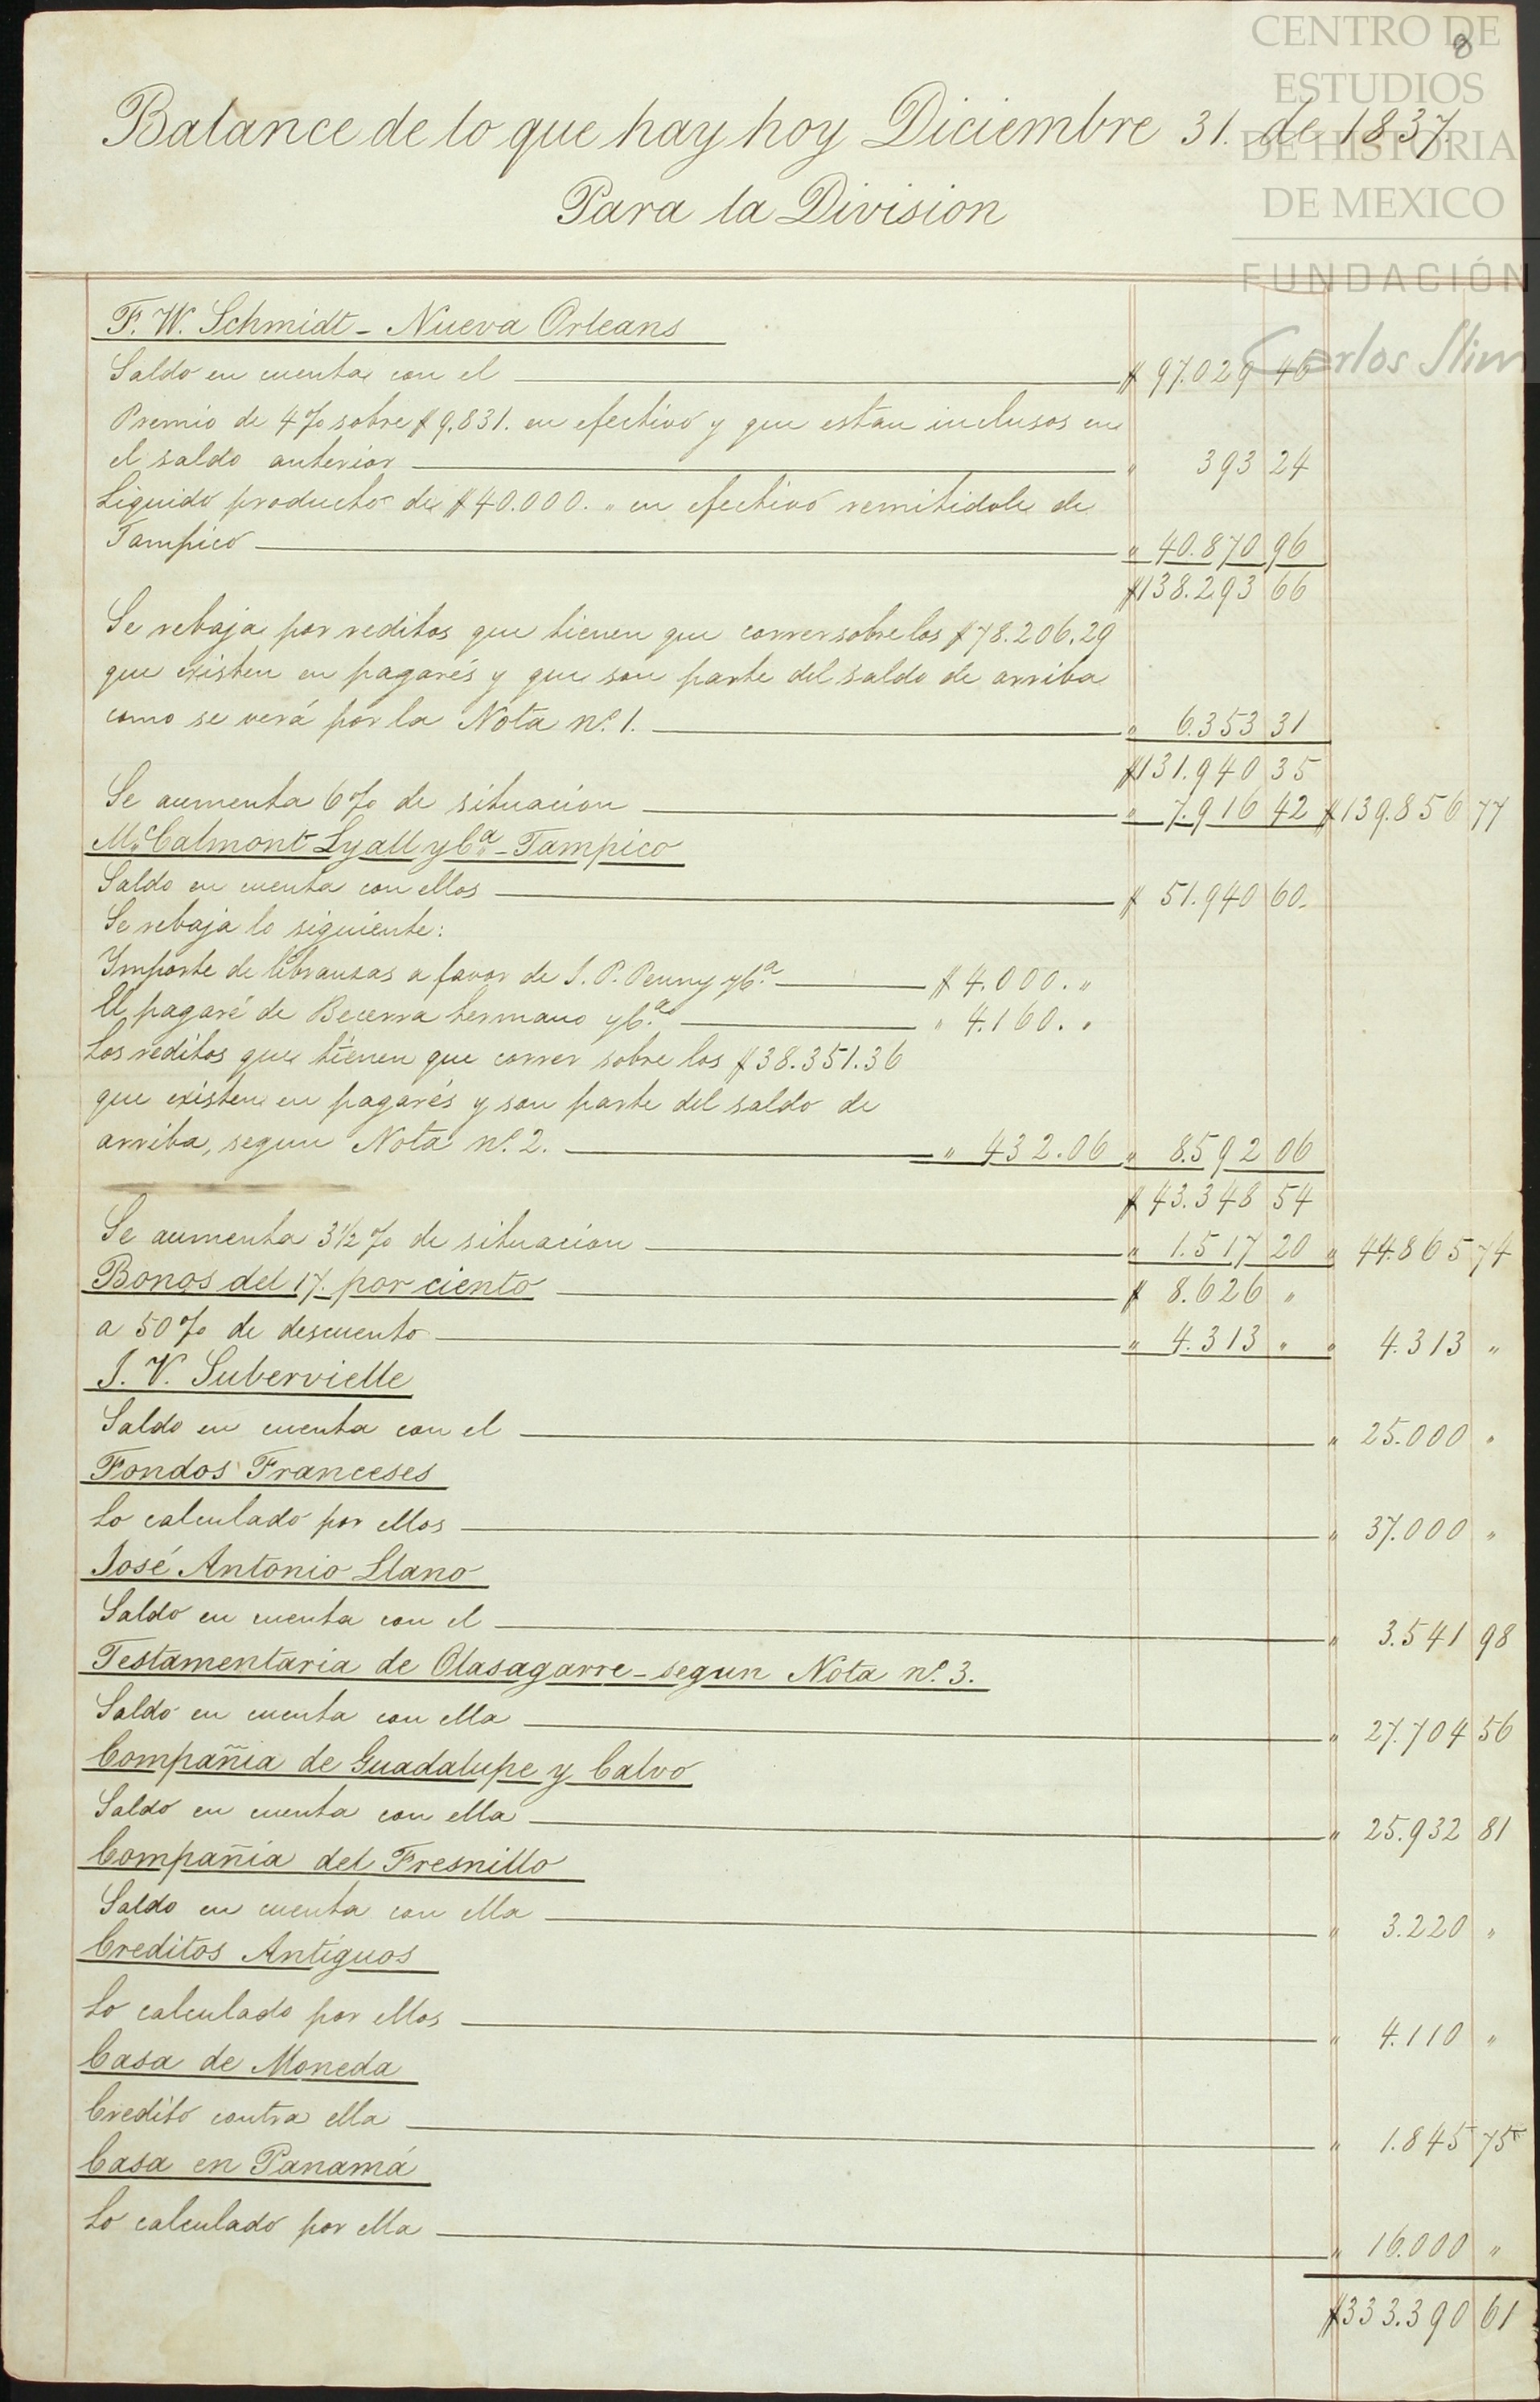 CENTRO DE
ESTUDIOS
DE HISTORIA
DE MEXICO
FUNDACIÓN
Carlos Slim
8
Balance de lo que hay hoy Diciembre 31. de 1837.
Para la Division
F. W. Schmidt - Nueva Orleans
Saldo en cuenta con el $ 97.029 46
Premio de 4% sobre $ 9.831. en efectivo y que estan inclusos en
el saldo anterior " 393 24
Liquido producto de $ 40.000. " en efectivo remitidole de
Tampico " 40.870 96
$138.293 66
Se rebaja por reditos que tienen que correr sobre los $ 78.206.29
que existen en pagarés y que son parte del saldo de arriba
como se verá por la Nota nº. 1. " 6.353 31
$131.940 35
Se aumenta 6% de situacion " 7.916 42 $139.856 77
Mc. Calmont Lyall y Cª. - Tampico
Saldo en cuenta con ellos $ 51.940 60.
Se rebaja lo siguiente:
Importe de libranzas a favor de J. P. Penny y Cª. $ 4.000. "
El pagaré de Becerra hermano y Cª. " 4.160. "
Los reditos que tienen que correr sobre los $ 38.351.36
que existen en pagarés y son parte del saldo de
arriba, segun Nota nº. 2. " 432.06 " 8.592 06
$ 43.348 54
Se aumenta 3½% de situacion " 1.517 20 " 44.865 74
Bonos del 17. por ciento $ 8.626 "
a 50% de descuento " 4.313 " " 4.313 "
J. V. Subervielle
Saldo en cuenta con el " 25.000 "
Fondos Franceses
Lo calculado por ellos " 37.000 "
José Antonio Llano
Saldo en cuenta con el " 3.541 98
Testamentaria de Olasagarre - segun Nota nº. 3.
Saldo en cuenta con ella " 27.704 56
Compañia de Guadalupe y Calvo
Saldo en cuenta con ella " 25.932 81
Compañia del Fresnillo
Saldo en cuenta con ella " 3.220 "
Creditos Antiguos
Lo calculado por ellos " 4.110 "
Casa de Moneda
Credito contra ella " 1.845 75
Casa en Panamá
Lo calculado por ella " 16.000 "
$333.390 61